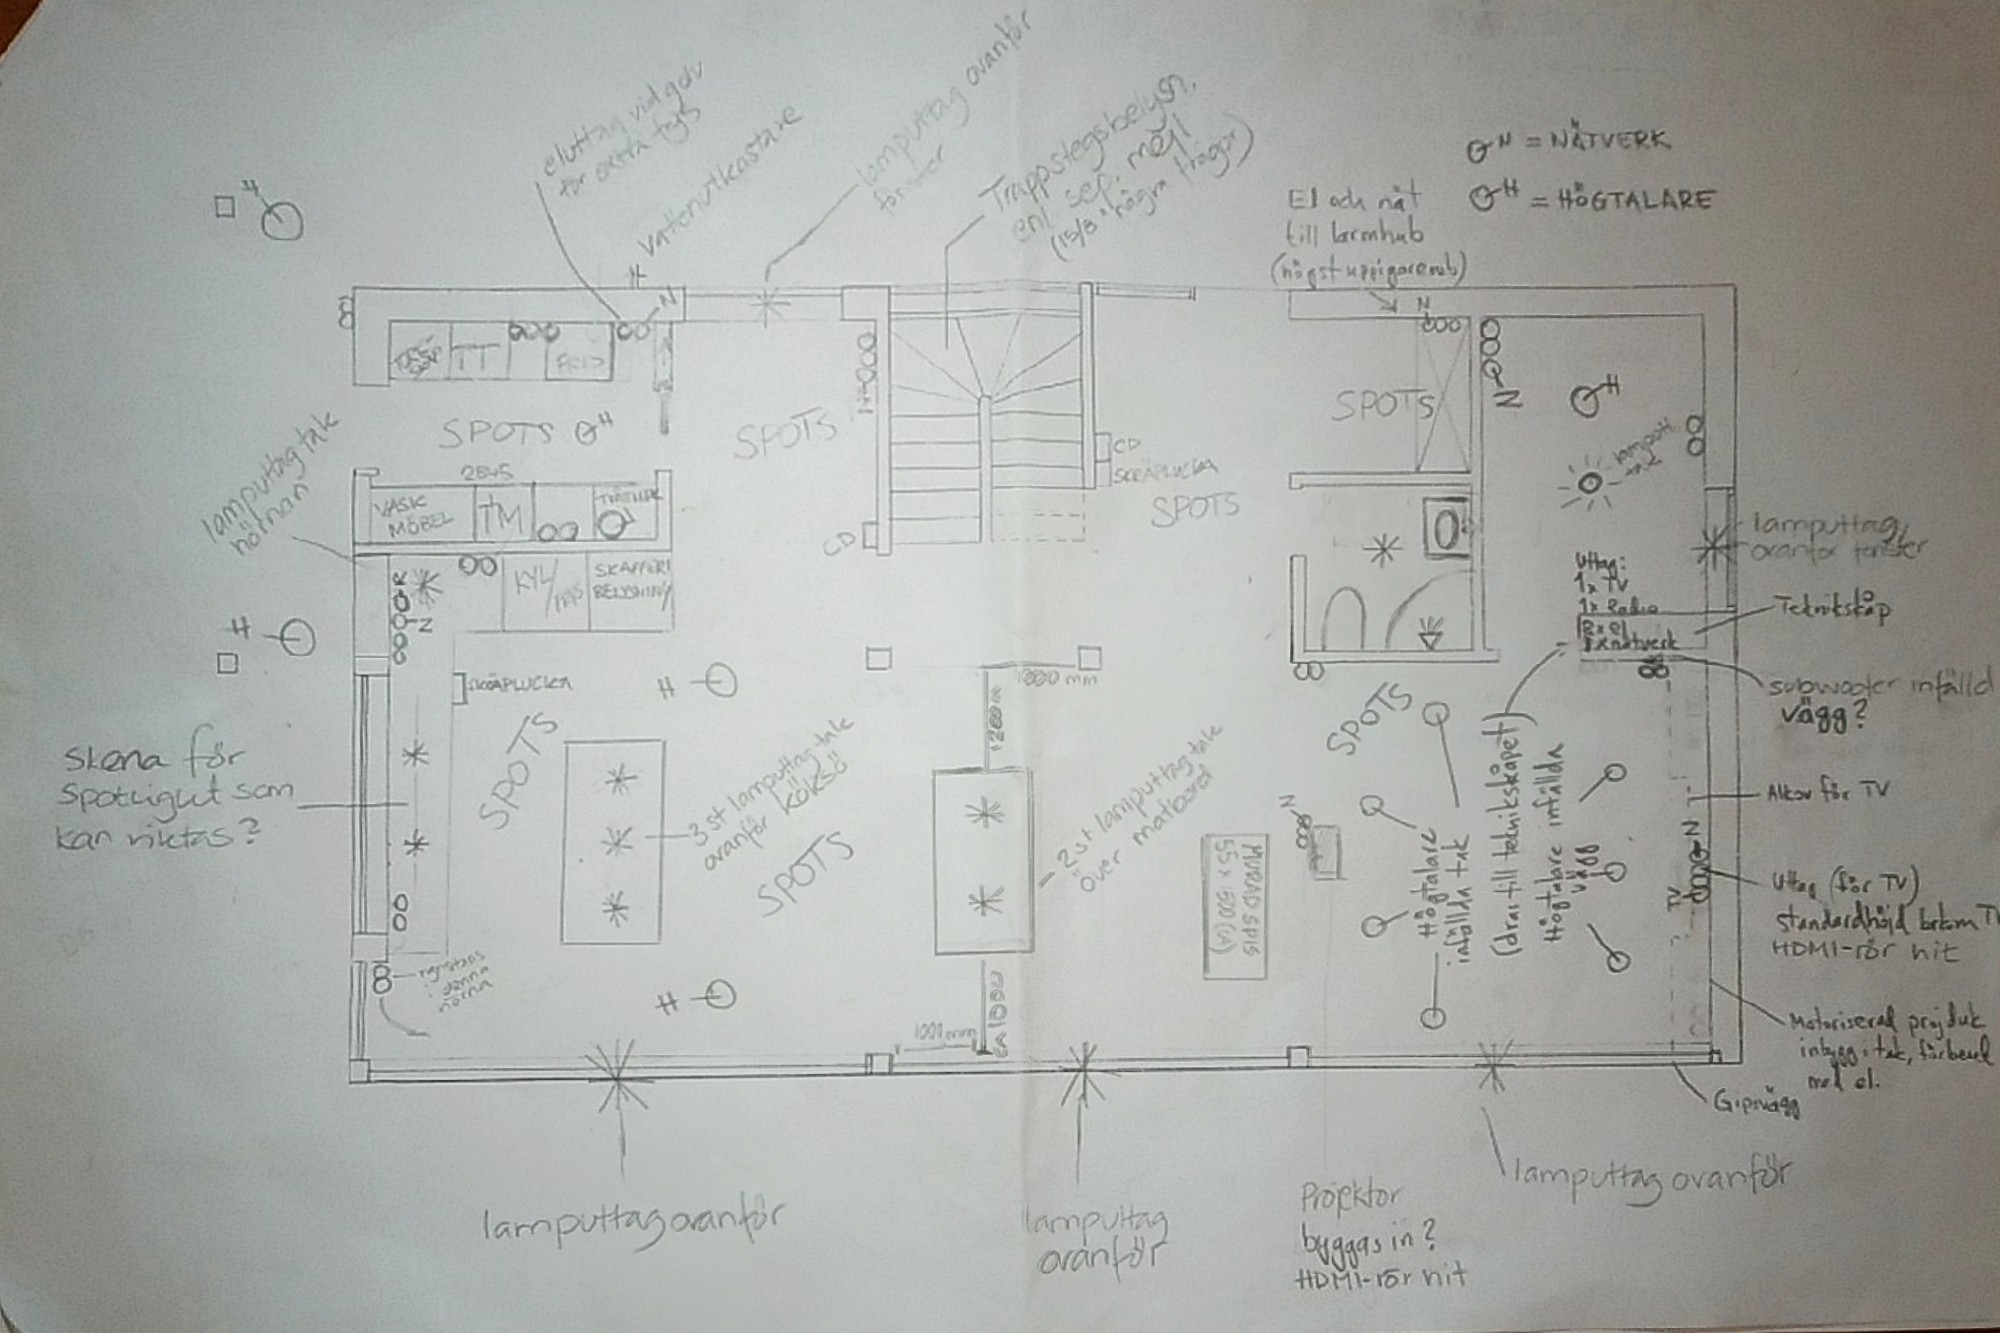 eluttag vid golv
för extra frys
Vattenutkastare
lamputtag ovanför
fönster
Trappstegsbelysn.
enl sep. mejl
(15/8 "några frågor)
El och nät
till larmhub
N = NÄTVERK
H = HÖGTALARE
H
N
N
TT
FRYS
SPOTS H
SPOTS
SPOTS
N
H
lamputt.
tak
lamputtag tak
hörnan
2845
VASK
MÖBEL
TM
CD
SKRÄPLUCKA
SPOTS
CD
KYL/
FRYS
SKAFFERI
BELYSNING
K
N
H
SKRÄPLUCKA
H
lamputtag
ovanför fönster
Uttag:
1x TV
1x Radio
2x el
1x nätverk
Teknikskåp
subwoofer infälld
vägg?
1000 mm
1200 mm
SPOTS
SPOTS
SPOTS
skena för
Spotlight som
kan riktas?
3 st lamputtag tak
ovanför köksö
2 st lamputtag tak
över matbord
MURAD SPIS
55 x 1500 (A)
N
Högtalare
infällda tak
(dras till teknikskåpet)
Högtalare infällda
vägg
Alkov för TV
N
TV
Uttag (för TV)
standardhöjd bakom TV
HDMI-rör hit
någonstans
i denna
hörna
H
1001 mm
CA 1000
Motoriserad projduk
inbygg i tak, förbered
med el.
Gipsvägg
lamputtag ovanför
lamputtag
ovanför
Projektor
byggas in?
HDMI-rör hit
lamputtag ovanför